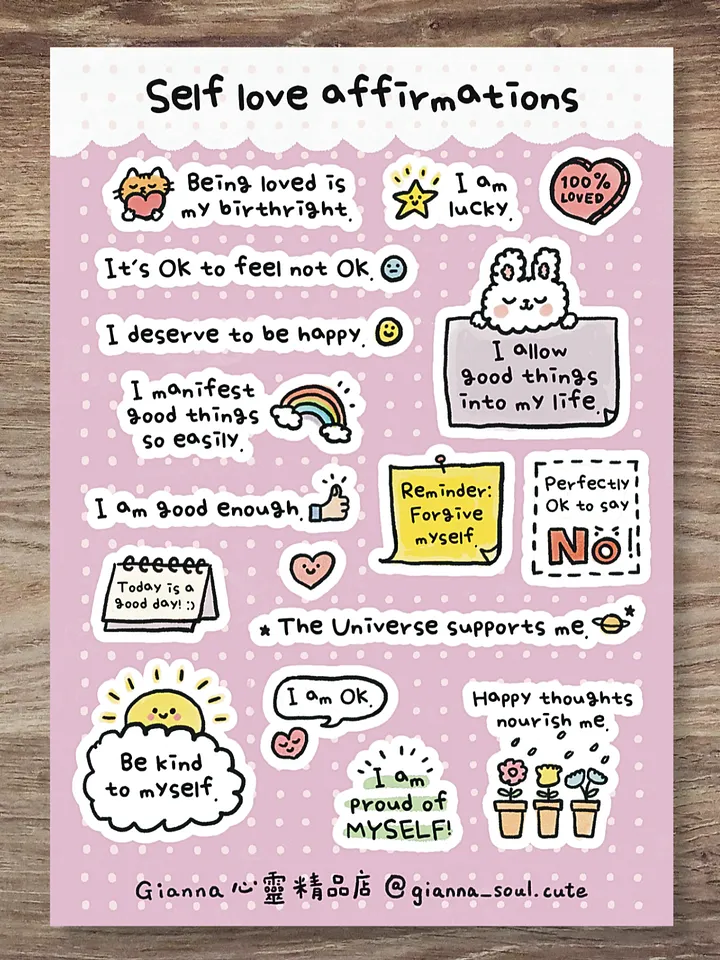 Self love affirmations
Being loved is
my birthright.
I am
lucky.
100%
LOVED
It's OK to feel not OK.
I deserve to be happy.
I allow
good things
into my life.
I manifest
good things
so easily.
I am good enough.
Reminder:
Forgive
myself.
Perfectly
OK to say
No!
Today is a
good day! :)
* The Universe supports me. *
I am OK.
Happy thoughts
nourish me.
Be kind
to myself.
I am
proud of
MYSELF!
Gianna 心靈精品店 @gianna_soul.cute